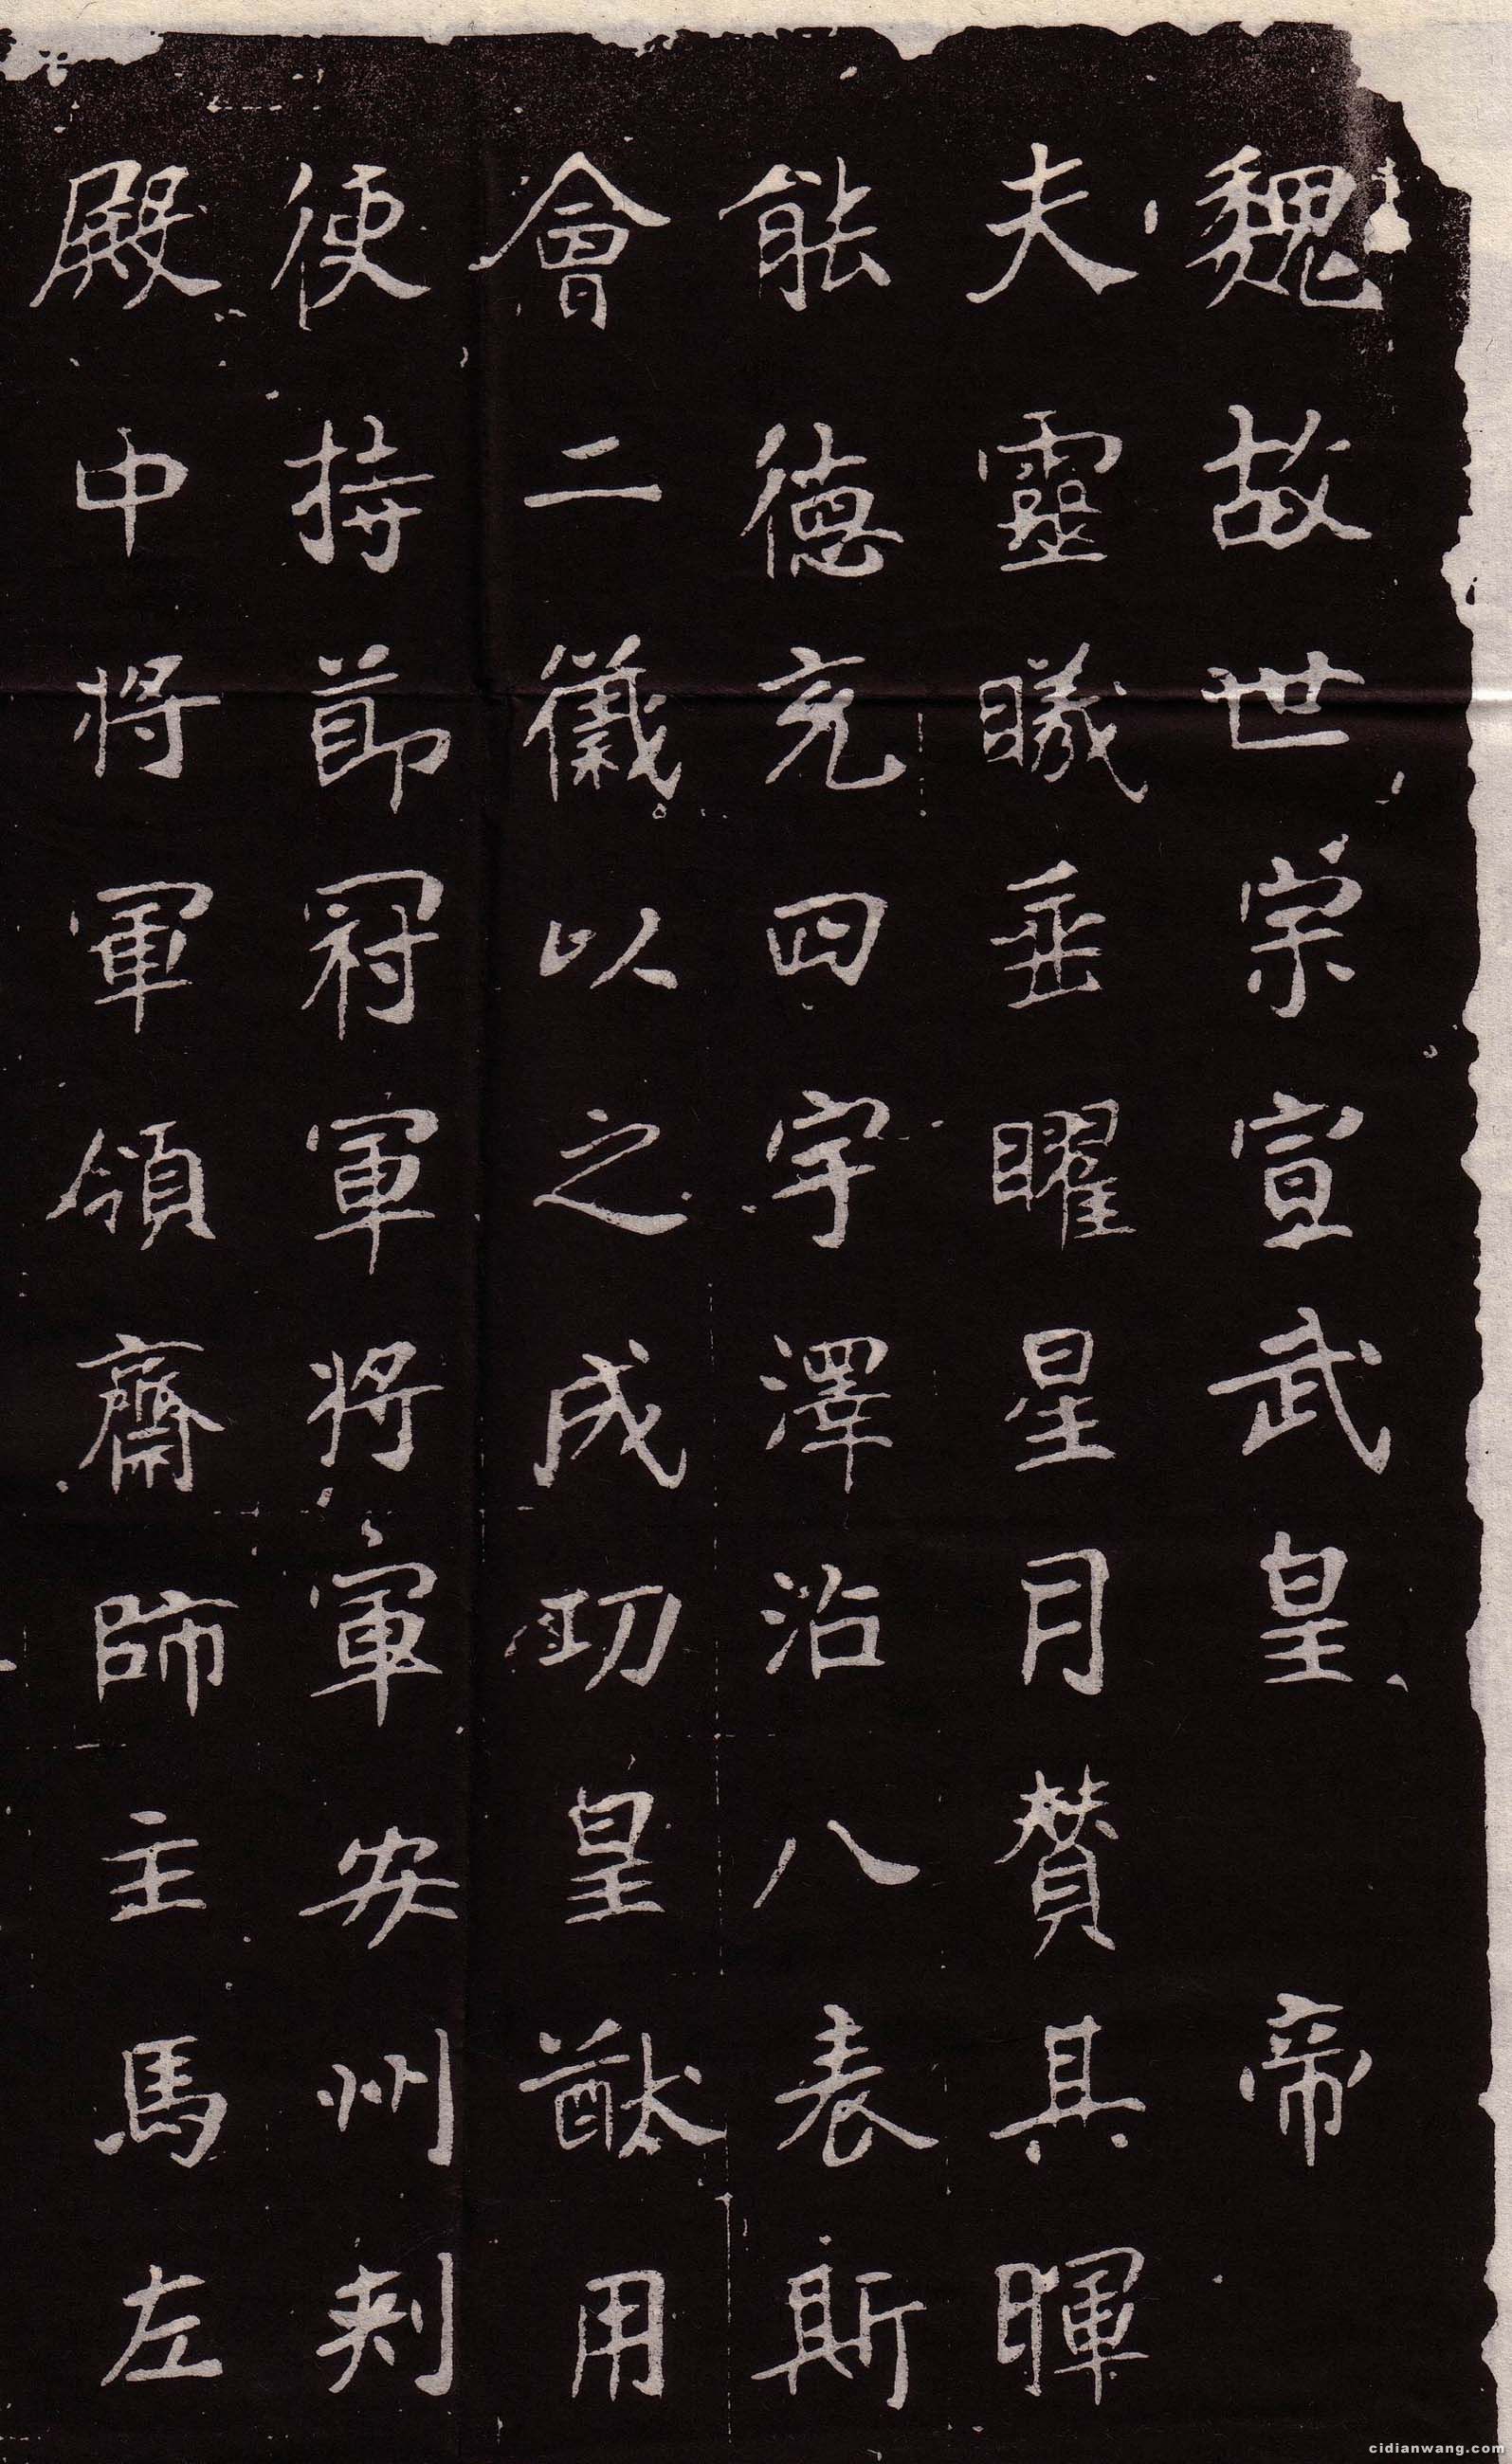 魏故世宗宣武皇帝
夫靈曦垂曜星月贊其暉
能德充四宇澤沾八表斯
會二儀以之成功皇猷用
使持節冠軍將軍安州刺
殿中將軍領齋帥主馬左
cidianwang.com